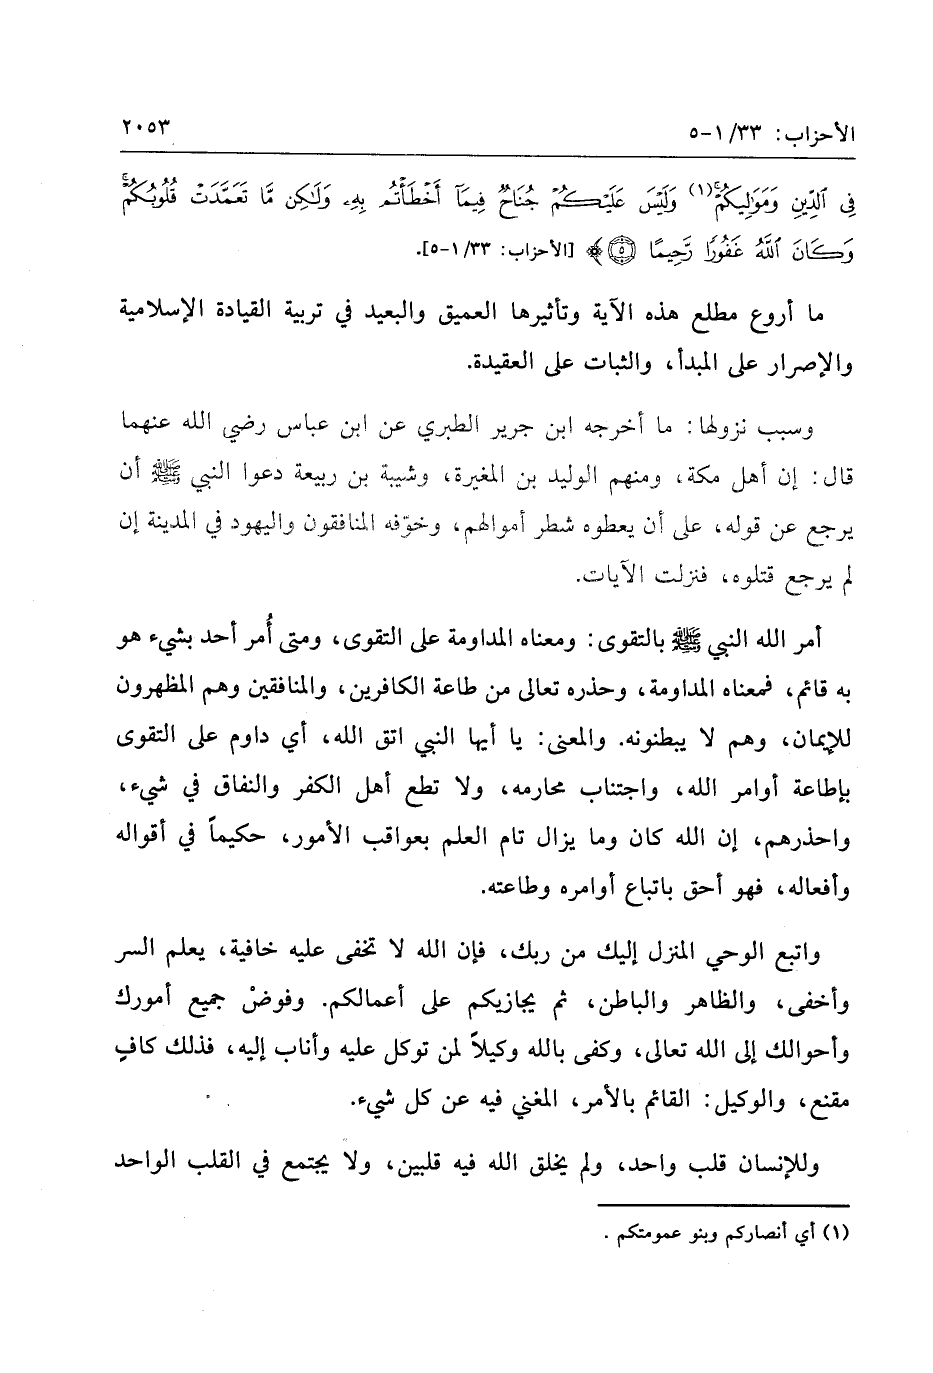 الأحزاب: ٣٣/ ١-٥
٢٠٥٣
فِى ٱلدِّينِ وَمَوَٰلِيكُمْۚ(١) وَلَيْسَ عَلَيْكُمْ جُنَاحٌ فِيمَآ أَخْطَأْتُم بِهِۦ وَلَٰكِن مَّا تَعَمَّدَتْ قُلُوبُكُمْۚ
وَكَانَ ٱللَّهُ غَفُورًا رَّحِيمًا ۝٥ ﴾ [الأحزاب: ٣٣/ ١-٥].
ما أروع مطلع هذه الآية وتأثيرها العميق والبعيد في تربية القيادة الإسلامية
والإصرار على المبدأ، والثبات على العقيدة.
وسبب نزولها: ما أخرجه ابن جرير الطبري عن ابن عباس رضي الله عنهما
قال: إن أهل مكة، ومنهم الوليد بن المغيرة، وشيبة بن ربيعة دعوا النبي ﷺ أن
يرجع عن قوله، على أن يعطوه شطر أموالهم، وخوّفه المنافقون واليهود في المدينة إن
لم يرجع قتلوه، فنزلت الآيات.
أمر الله النبي ﷺ بالتقوى: ومعناه المداومة على التقوى، ومتى أُمر أحد بشيء هو
به قائم، فمعناه المداومة، وحذره تعالى من طاعة الكافرين، والمنافقين وهم المظهرون
للإيمان، وهم لا يبطنونه. والمعنى: يا أيها النبي اتق الله، أي داوم على التقوى
بإطاعة أوامر الله، واجتناب محارمه، ولا تطع أهل الكفر والنفاق في شيء،
واحذرهم، إن الله كان وما يزال تام العلم بعواقب الأمور، حكيماً في أقواله
وأفعاله، فهو أحق باتباع أوامره وطاعته.
واتبع الوحي المنزل إليك من ربك، فإن الله لا تخفى عليه خافية، يعلم السر
وأخفى، والظاهر والباطن، ثم يجازيكم على أعمالكم. وفوضْ جميع أمورك
وأحوالك إلى الله تعالى، وكفى بالله وكيلاً لمن توكل عليه وأناب إليه، فذلك كافٍ
مقنع، والوكيل: القائم بالأمر، المغني فيه عن كل شيء.
وللإنسان قلب واحد، ولم يخلق الله فيه قلبين، ولا يجتمع في القلب الواحد
(١) أي أنصاركم وبنو عمومتكم .